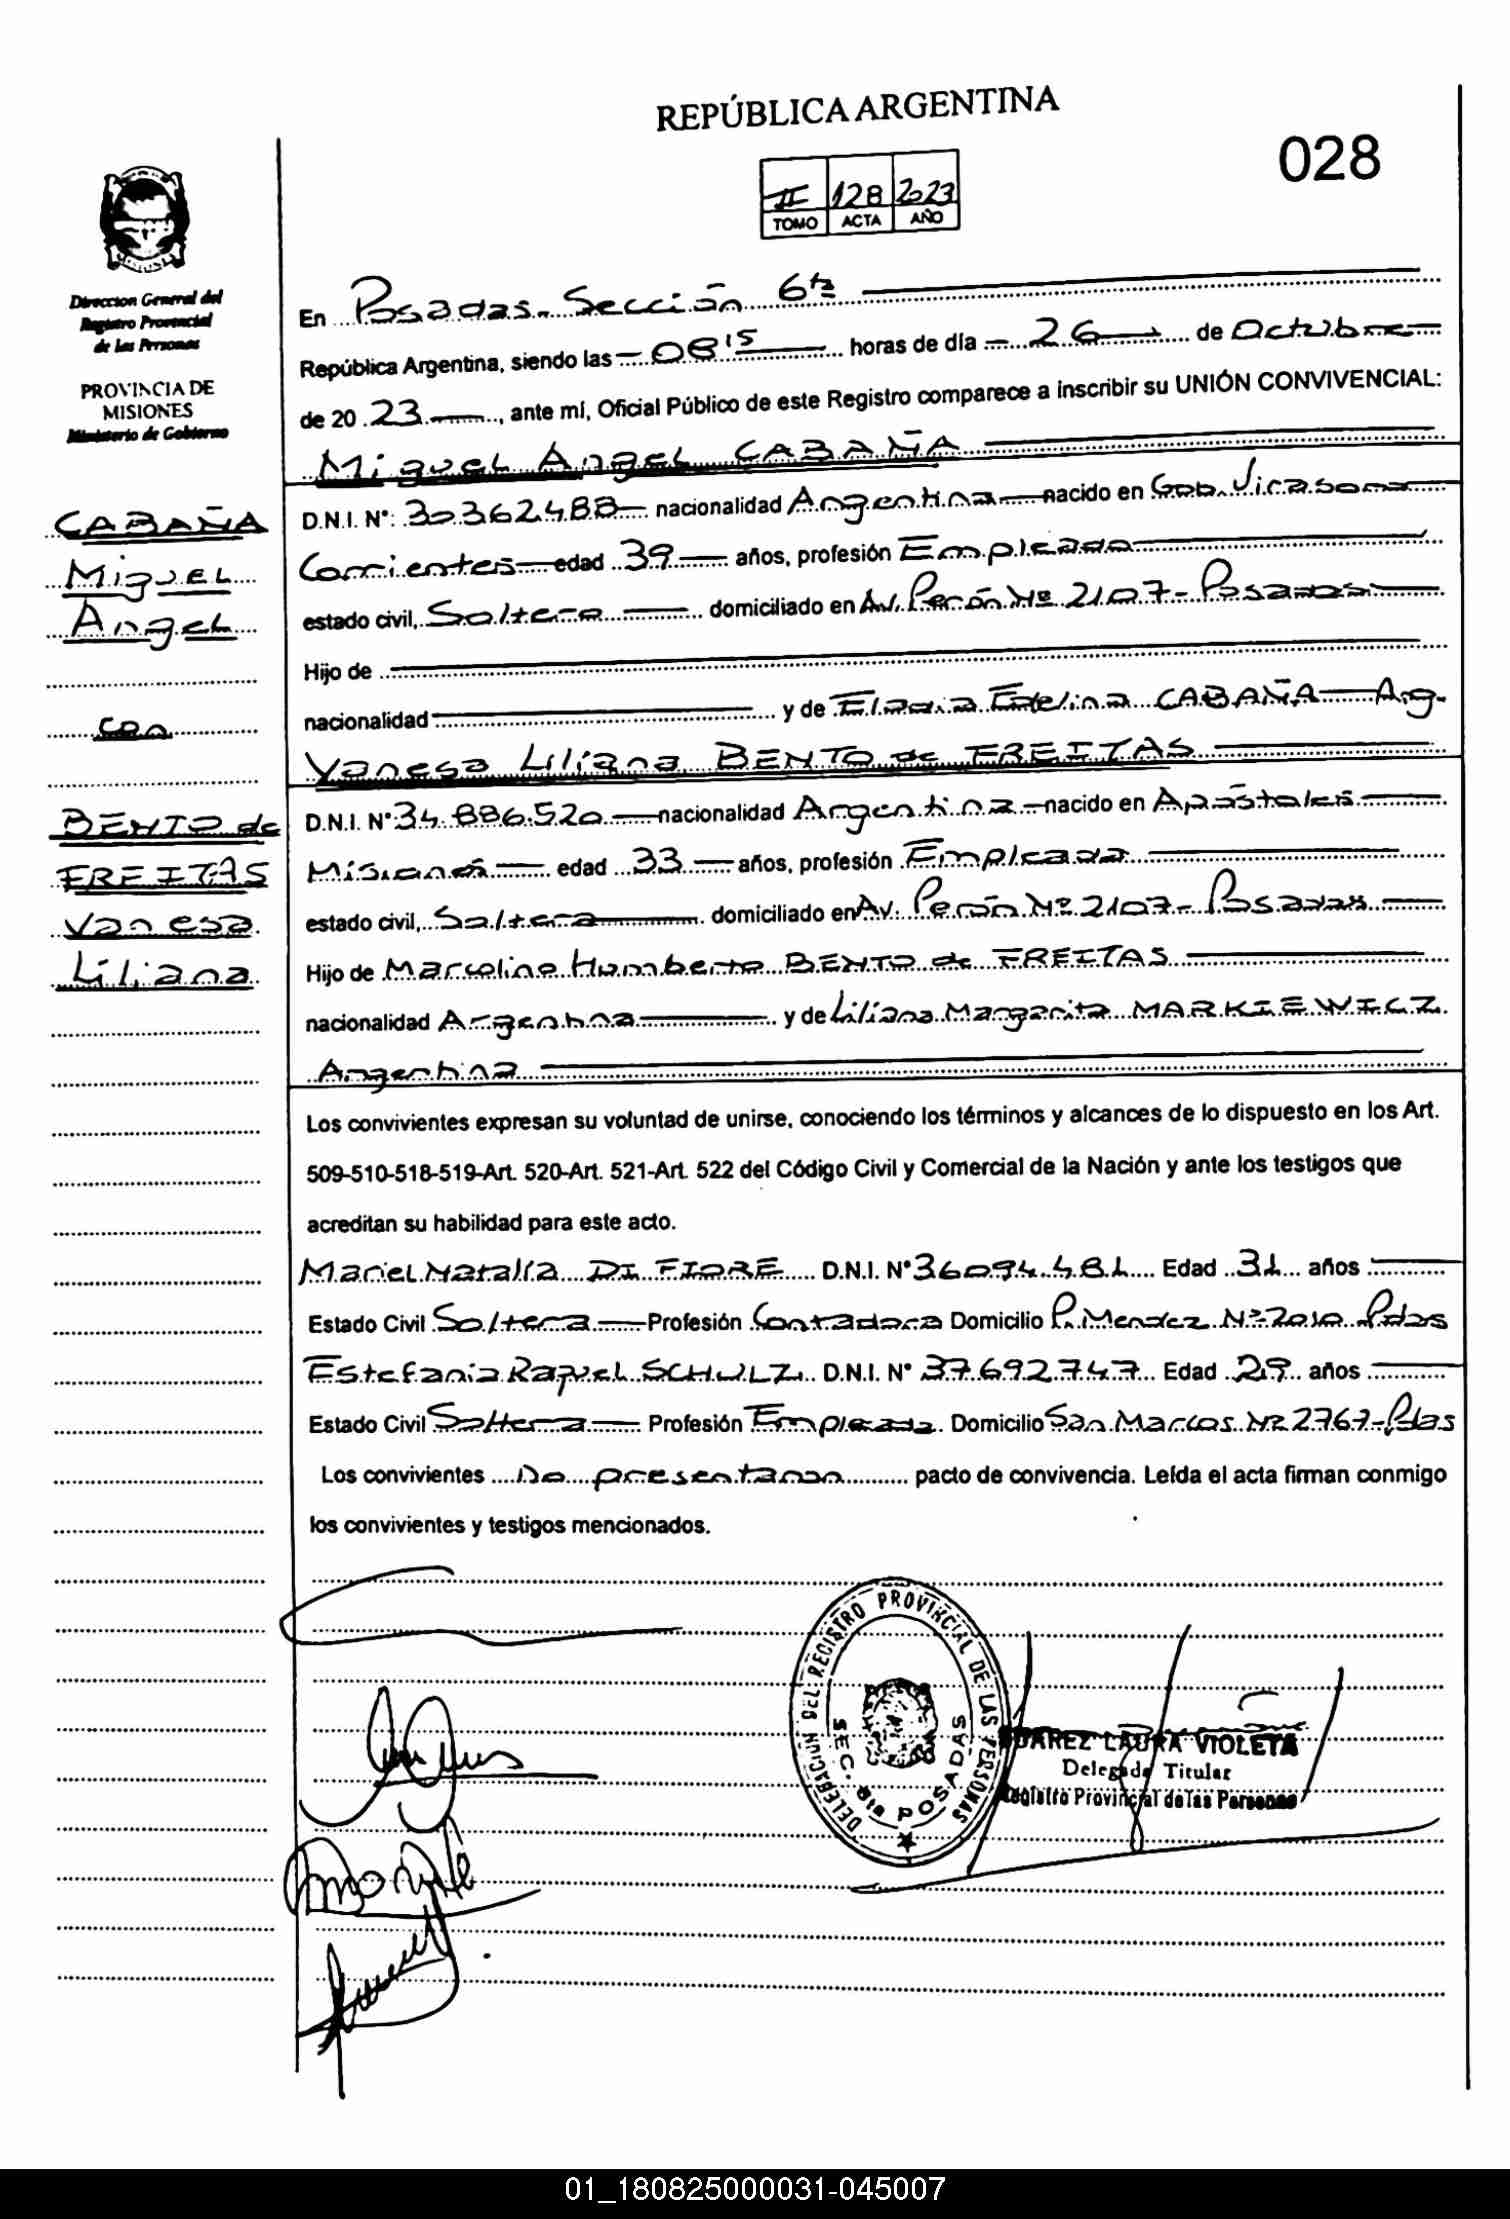 REPÚBLICA ARGENTINA
028
II 128 2023
TOMO ACTA AÑO
Direccion General del
Registro Provincial
de las Personas
PROVINCIA DE
MISIONES
Ministerio de Gobierno
En Posadas - Sección 6ta
República Argentina, siendo las 08 15 horas de día 26 de Octubre
de 20 23, ante mí, Oficial Público de este Registro comparece a inscribir su UNIÓN CONVIVENCIAL:
Miguel Angel CABAÑA
D.N.I. N°: 30362488 nacionalidad Argentina nacido en Gob. Virasoro
Corrientes edad 39 años, profesión Empleado
estado civil, Soltero domiciliado en Av. Perón Nº 2107 - Posadas
Hijo de
nacionalidad y de Eladia Etelina CABAÑA Arg.
Vanesa Liliana BENTO de FREITAS
D.N.I. N° 34.886.520 nacionalidad Argentina nacido en Apóstoles
Misiones edad 33 años, profesión Empleada
estado civil, Soltera domiciliado en Av. Perón Nº 2107 - Posadas
Hijo de Marcelino Humberto BENTO de FREITAS
nacionalidad Argentina y de Liliana Margarita MARKIEWICZ
Argentina
Los convivientes expresan su voluntad de unirse, conociendo los términos y alcances de lo dispuesto en los Art.
509-510-518-519-Art. 520-Art. 521-Art. 522 del Código Civil y Comercial de la Nación y ante los testigos que
acreditan su habilidad para este acto.
Mariel Natalia DI FIORE D.N.I. N° 36094.481 Edad 31 años
Estado Civil Soltera Profesión Contadora Domicilio P. Mendez Nº 2010 Pdas
Estefania Raquel SCHULZ D.N.I. N° 37.692.747 Edad 29 años
Estado Civil Soltera Profesión Empleada Domicilio San Marcos Nº 2767 - Pdas
Los convivientes no presentaron pacto de convivencia. Leída el acta firman conmigo
los convivientes y testigos mencionados.
CABAÑA
Miguel
Angel
con
BENTO de
FREITAS
Vanesa
Liliana
DELEGACION DEL REGISTRO PROVINCIAL DE LAS PERSONAS
SEC. 6ta POSADAS
LAURA VIOLETA
Delegada Titular
Registro Provincial de las Personas
01_180825000031-045007